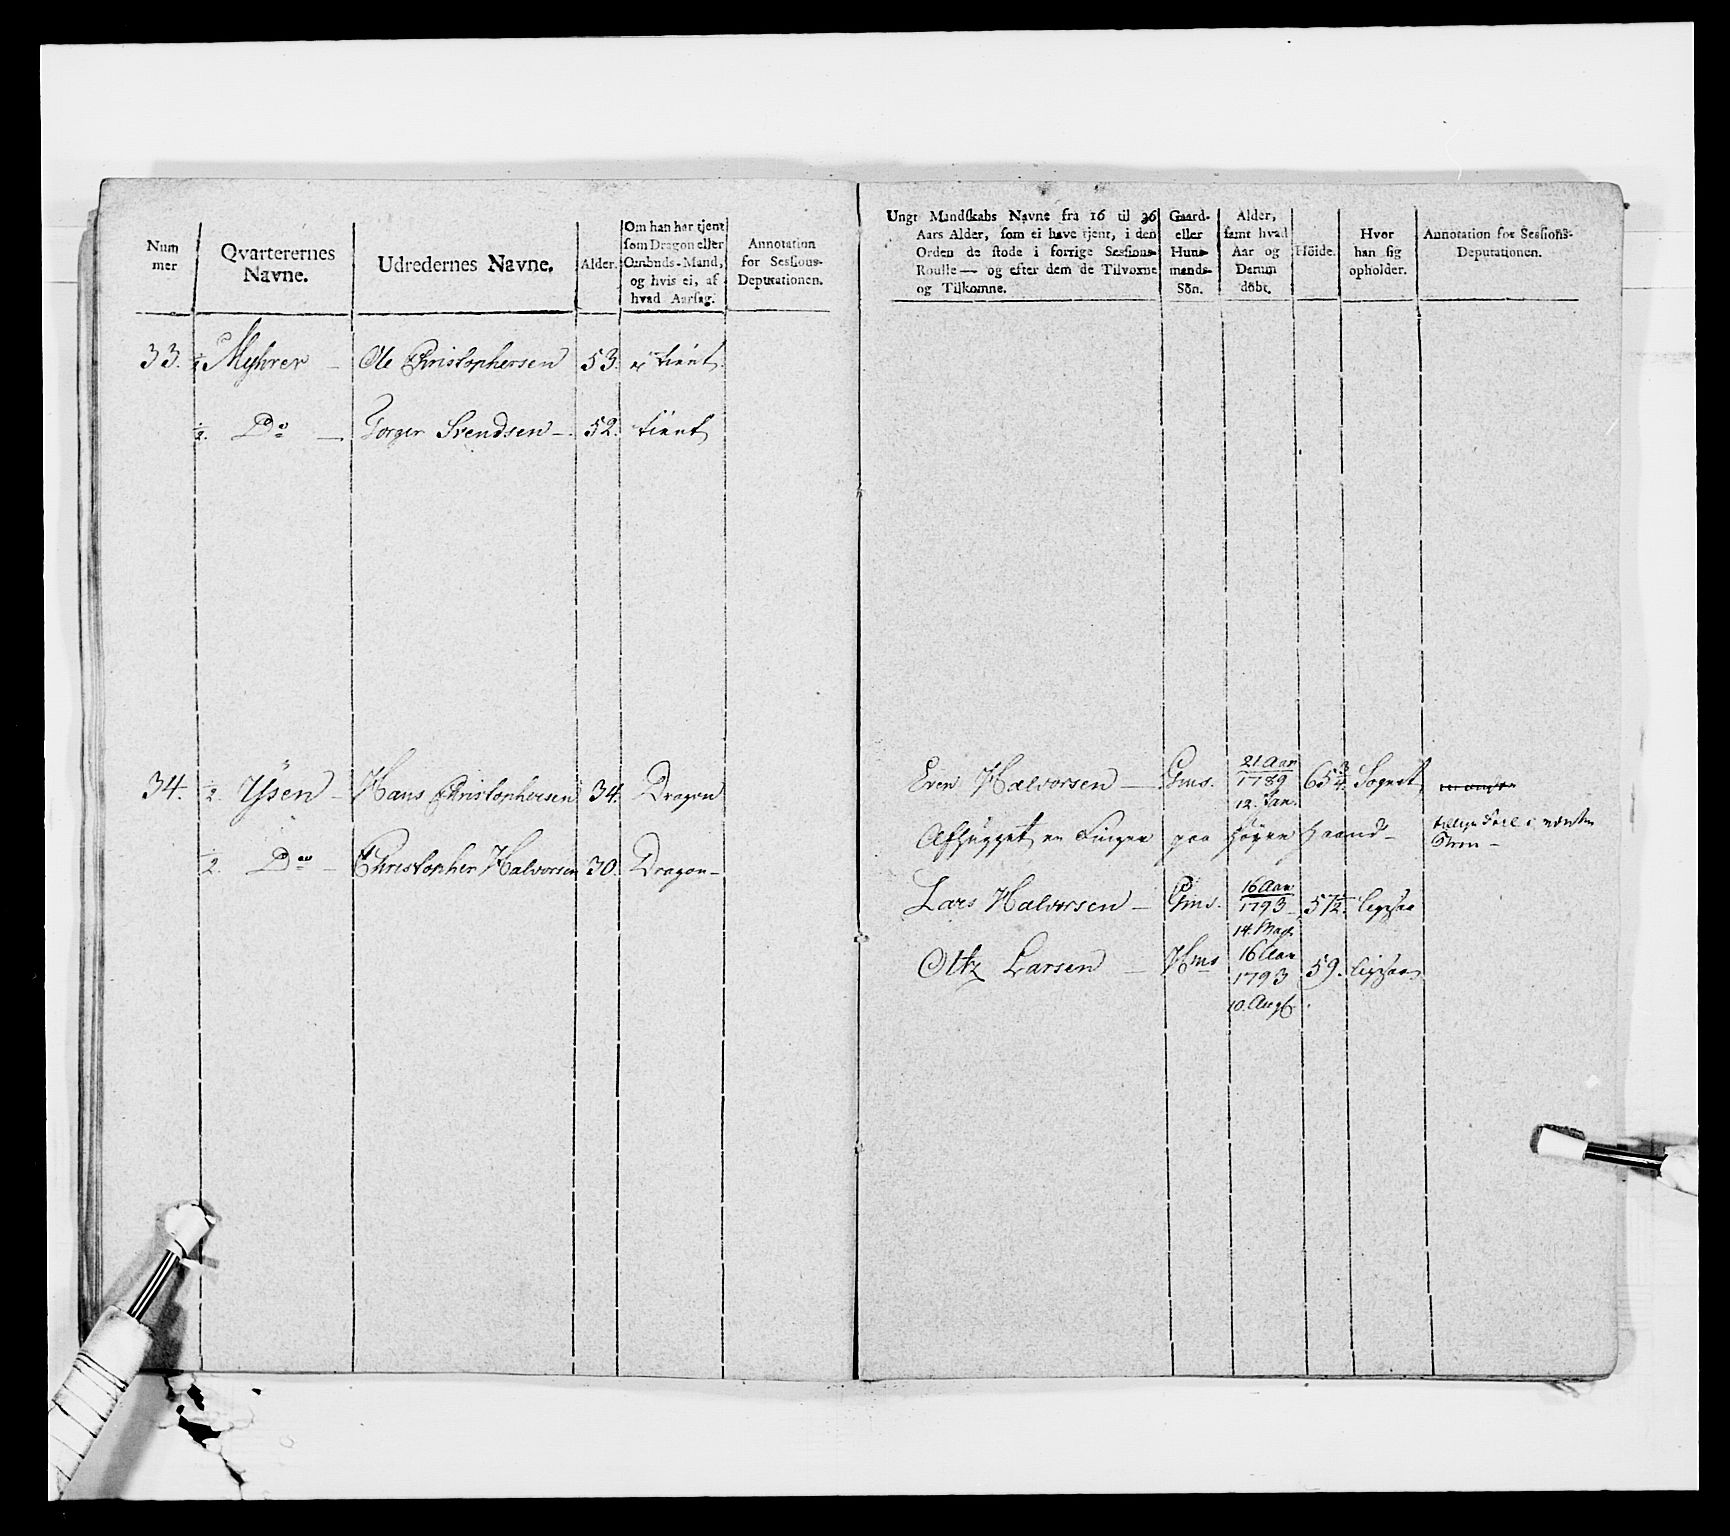 Num
mer
Qvarterernes
Navne.
Udredernes Navne.
Alder.
Om han har tjent
som Dragon eller
Ombuds-Mand,
og hvis ei, af
hvad Aarsag.
Annotation
for Sessions-
Deputationen.
33. ½ Myhrer – Ole Christophersen 53. ei tient
½. Do – Torger Svendsen – 52. tient
34. ½. Ysen – Hans Christophersen 34. Dragon
½. Do – Christopher Halvorsen 30. Dragon –
Ungt Mandskabs Navne fra 16 til 36
Aars Alder, som ei have tjent, i den
Orden de stode i forrige Sessions-
Roulle — og efter dem de Tilvoxne
og Tilkomne.
Gaard-
eller
Huus-
mands-
Sön.
Alder,
samt hvad
Aar og
Datum
döbt.
Höide.
Hvor
han sig
opholder.
Annotation for Sessions-
Deputationen.
Even Halvorsen — Gms. 21 Aar 1789 12. Jan. 65¾. Sognet
Afhugget en Finger paa høyre Haand –
Lars Halvorsen – Gms. 16 Aar 1793 14. May 57½. ligesaa
Larsen – Hms 16 Aar 1793 10. Aug. 59. ligesaa